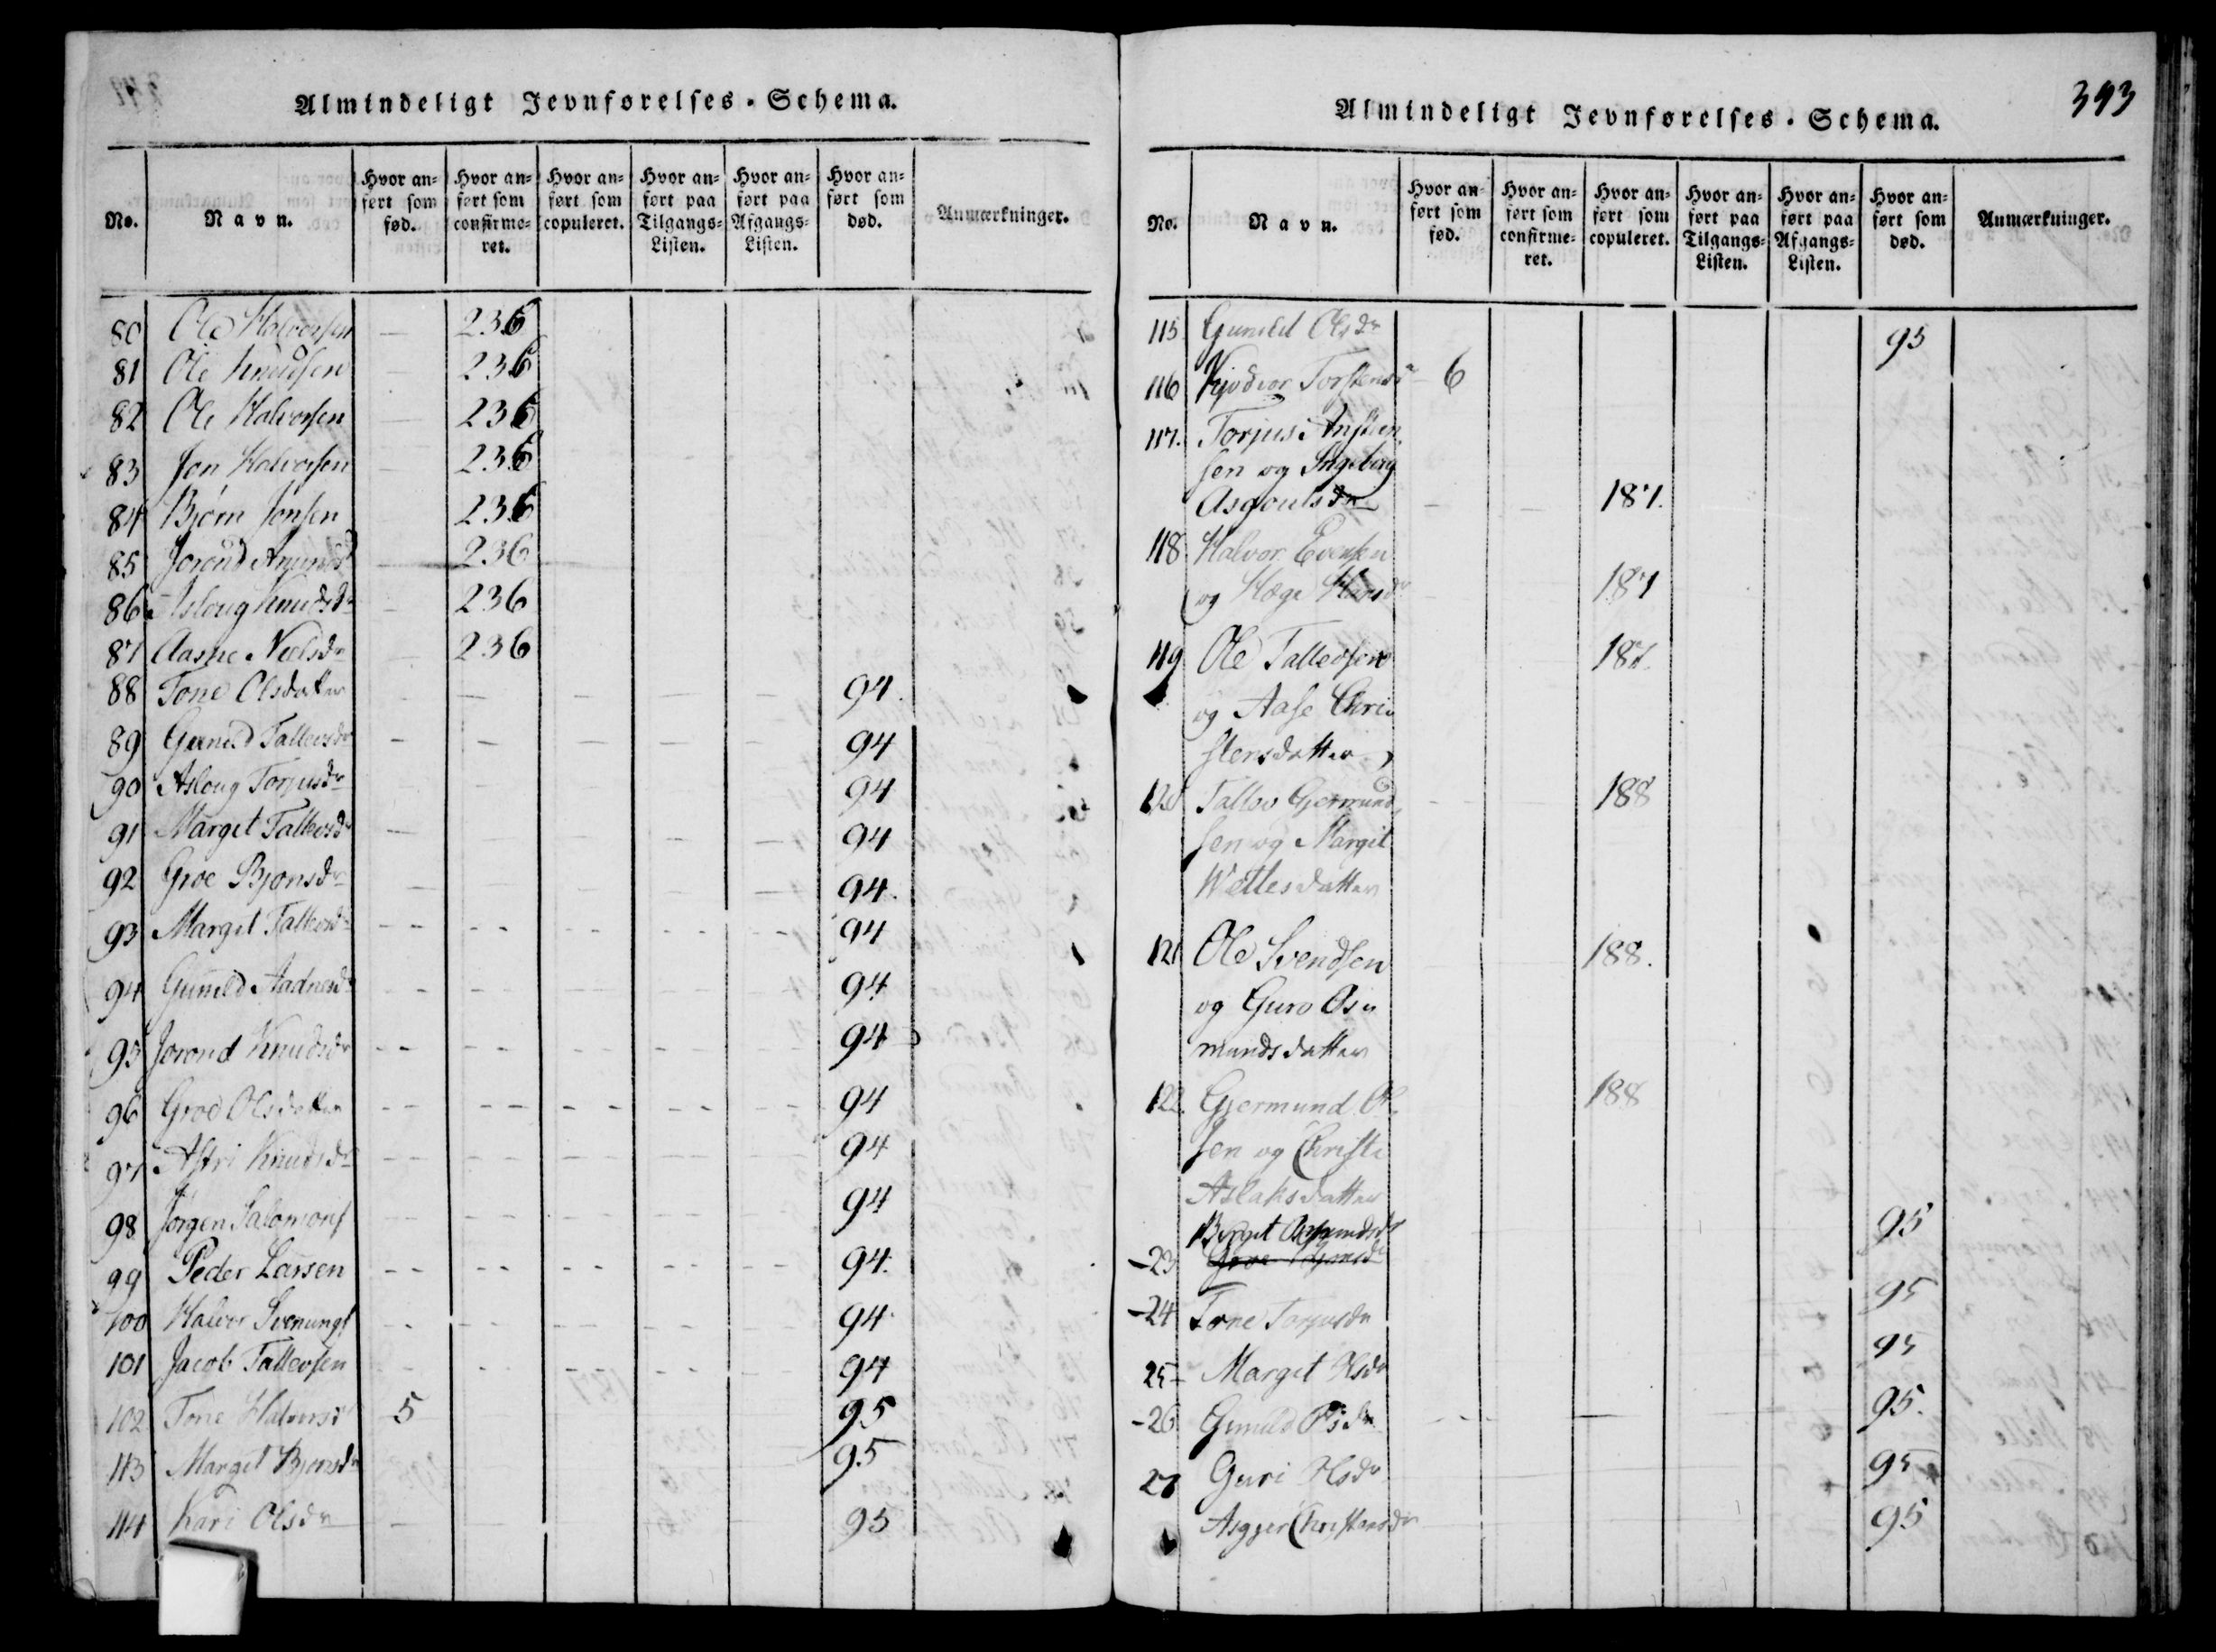 Almindeligt Jevnførelses-Schema.
No. Navn. Hvor anført som fød. Hvor anført som confirmeret. Hvor anført som copuleret. Hvor anført paa Tilgangs-Listen. Hvor anført paa Afgangs-Listen. Hvor anført som død. Anmærkninger.
80 Ole Halvorsen 236
81 Ole Knudsen 236
82 Ole Halvorsen 236
83 Jon Halvorsen 236
84 Bjørn Jonsen 236
85 Jorond 236
86 Asloug Knudsdr 236
87 Aasne Nielsdr 236
88 Tone Olsdatter 94.
89 Gunild Tallevsdr 94
90 Asloug Torjusdr 94
91 Margit Tallevsdr 94
92 Groe Bjonsdr 94.
93 Margit Tallevsdr 94
94 Gunild Aadnesdr 94
95 Jorond Knudsdr 94
96 Groe Olsdatter 94
97 Astri Knudsdr 94
98 Jørgen Salomons 94
99 Peder Larsen 94.
100 Halvor Svenungs 94
101 Jacob Tallevsen 94
102 Tone Halvorsdr 5 95
113 Margit Bjonsdr 95
114 Kari Olsdr 95
393
Almindeligt Jevnførelses-Schema.
No. Navn. Hvor anført som fød. Hvor anført som confirmeret. Hvor anført som copuleret. Hvor anført paa Tilgangs-Listen. Hvor anført paa Afgangs-Listen. Hvor anført som død. Anmærkninger.
115 Gunild Olsdr 95
116 Torstensdr 6
117. Torjus Ansten
sen og Ingeborg
Asgoutsdr 187.
118 Halvor Evensen
og Hæge Hansdr 187
119 Ole Tallevsen 187.
og Aase Chri
stensdatter
120 Tallev Gjermund 188
sen og Margit
Wetlesdatter
121 Ole Svendsen 188.
og Guro Os
mundsdatter
122. Gjermund Ol 188
sen og Christi
Aslaksdatter
Birgit 95
-23 Groe
-24 Tone Torjusdr 95
25- Margit Olsdr 95
-26 Gunild 95.
27 Guri Olsdr 95
Asgjer Christensdr 95